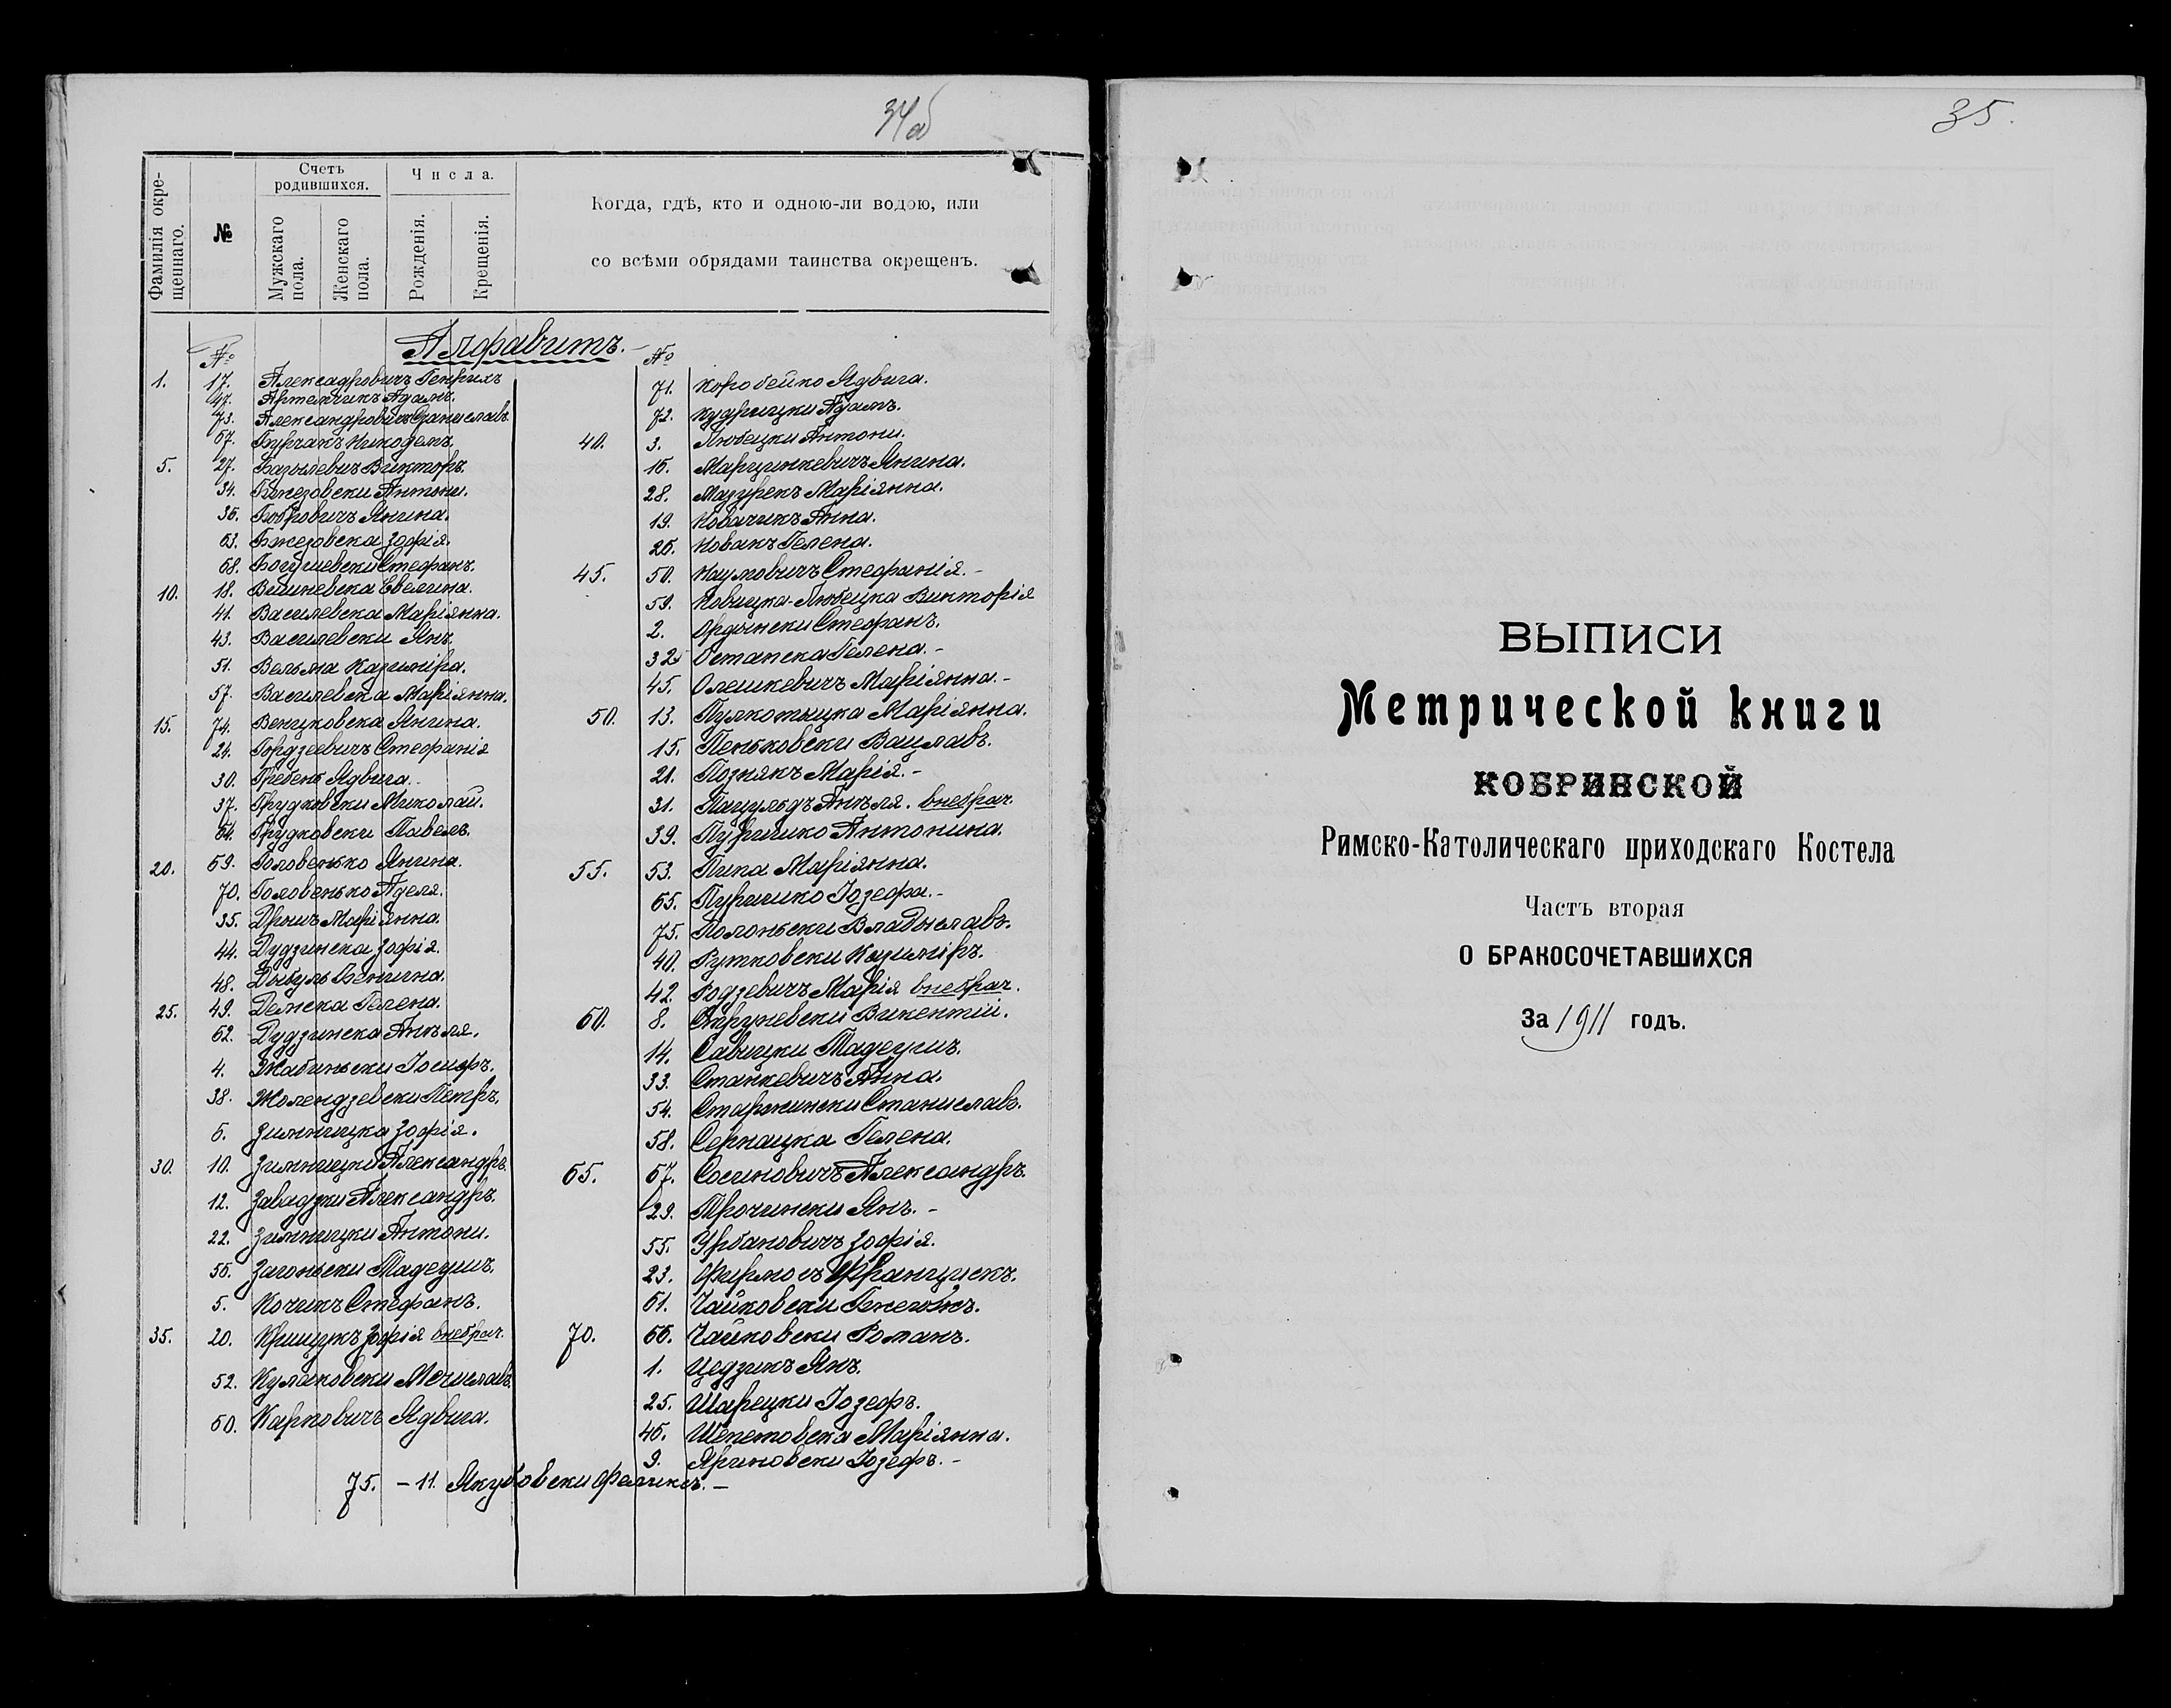 34об
Фамилія окрещеннаго.
№
Счетъ родившихся.
Мужскаго пола.
Женскаго пола.
Числа.
Рожденія.
Крещенія.
Когда, гдѣ, кто и одною-ли водою, или
со всѣми обрядами таинства окрещенъ.
Алфавитъ.
№
1. 17. Александровичъ Генрихъ
47. Артемчикъ Адамъ.
73. Александровичъ Станиславъ.
67. Бурчакъ Никодемъ.
5. 27. Базылевичъ Викторъ.
34. Бжезовски Антони.
36. Бобровичъ Янина.
63. Бжезовска Зофія.
68. Богушевски Стефанъ.
10. 18. Вишневска Евелина.
41. Василевска Маріянна.
43. Василевски Янъ.
51. Вельма Казиміра.
57. Василевска Маріянна.
15. 74. Венцковска Янина.
24. Гордзеевичъ Стефанія
30. Гребень Ядвига.
37. Грудковски Миколай.
64. Грудковски Павелъ.
20. 69. Головенько Янина.
70. Головенько Аделя.
35. Дрошъ Маріянна.
44. Дудзинска Зофія.
48. Дыбуль Бенигна.
25. 49. Демска Гелена.
62. Дудзинска Анѣля.
4. Жабиньски Іосифъ.
38. Жолендзевски Петръ.
6. Зимницка Зофія.
30. 10. Зимницки Александръ.
12. Завадзки Александръ.
22. Зимницки Антони.
56. Загоньски Тадеушъ.
5. Кочикъ Стефанъ.
35. 20. Крищукъ Зофія внебрач.
52. Кулаковски Мечиславъ.
60. Карповичъ Ядвига.
№
71. Коробейко Ядвига.
72. Кудрицки Адамъ.
40. 3. Любецки Антони.
16. Марцинкевичъ Янина.
28. Мазурекъ Маріянна.
19. Новачикъ Анна.
26. Новакъ Гелена.
45. 50. Наумовичъ Стефанія.-
59. Новицка-Любецка Викторія
2. Ордынски Стефанъ.
32. Остапска Гелена.-
45. Олешкевичъ Маріянна.-
50. 13. Пулкотыцка Маріянна.
15. Пеньковски Вацлавъ.
21. Познякъ Марія.-
31. Пацульдъ Анѣля. внебрач.
39. Пуршико Антонина.
55. 53. Пика Маріянна.
65. Пуршико Іозефа.-
75. Полоньски Владыславъ.
40. Рутковски Казиміръ.
42. Родзевичъ Марія внебрач.
60. 8. Струневски Викентій.
14. Савицки Тадеушъ.
33. Станкевичъ Анна.
54. Старжински Станиславъ.
58. Серпацка Гелена.
65. 67. Сосиновичъ Александръ.
29. Трочински Янъ.-
55. Урбановичъ Зофія.
23. Фирмосъ Францискъ.
61. Чайковски
70. 66. Чайковски Романъ.
1. Цедзикъ Янъ.
25. Шарецки Іозефъ.
46. Шепетовска Маріянна.
9. Яриновски Іозефъ.-
75. - 11. Якубовски Феликсъ.-
35.
ВЫПИСИ
Метрической книги
КОБРИНСКОЙ
Римско-Католическаго приходскаго Костела
Часть вторая
О БРАКОСОЧЕТАВШИХСЯ
За 1911 годъ.